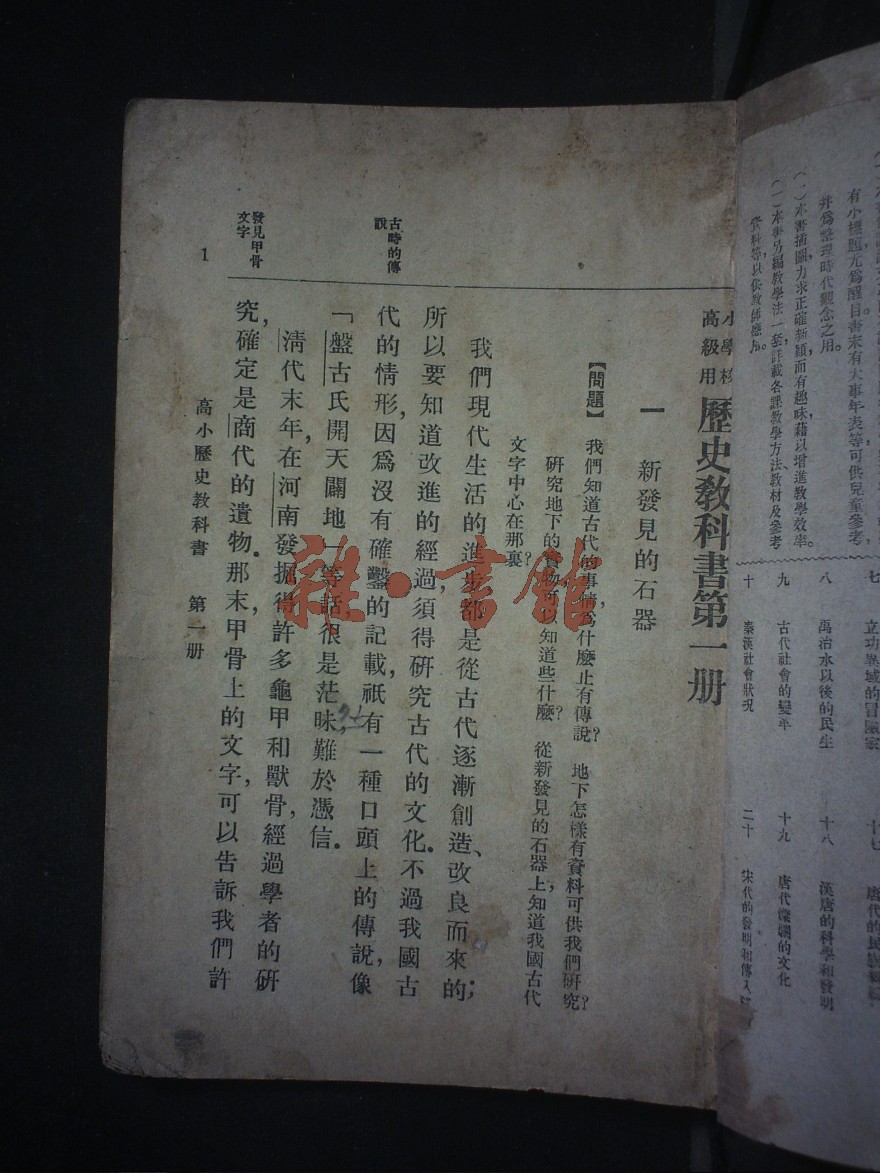 有小標題尤爲醒目書末有大事年表等可供兒童參考，
幷爲整理時代觀念之用。
(一)本書插圖力求正確新穎而有趣味藉以增進教學效率。
(一)本書另編教學法一套詳載各課教學方法、教材及參考
資料等以供教師應用。
七 立功異域的冒險家
八 禹治水以後的民生
九 古代社會的變革
十 秦漢社會狀況
十七
十八 漢唐的科學和發明
十九 唐代燦爛的文化
二十 宋代的發明和傳入
小學校
高級用
歷史教科書第一册
一 新發見的石器
【問題】 我們知道古代的事情，爲什麼止有傳說？ 地下怎樣有資料可供我們研究？
研究地下的實物可以知道些什麼？ 從新發見的石器上，知道我國古代
文字中心在那裏？
我們現代生活的進步都是從古代逐漸創造、改良而來的；
所以要知道改進的經過，須得研究古代的文化。不過我國古
古時的傳
說
代的情形，因爲沒有確鑿的記載，祇有一種口頭上的傳說，像
「盤古氏開天闢地」等話，很是茫昧，難於憑信。
清代末年，在河南發掘得許多龜甲和獸骨，經過學者的研
發見甲骨
文字
究，確定是商代的遺物。那末，甲骨上的文字，可以告訴我們許
1
高小歷史教科書 第一册
雜·書館